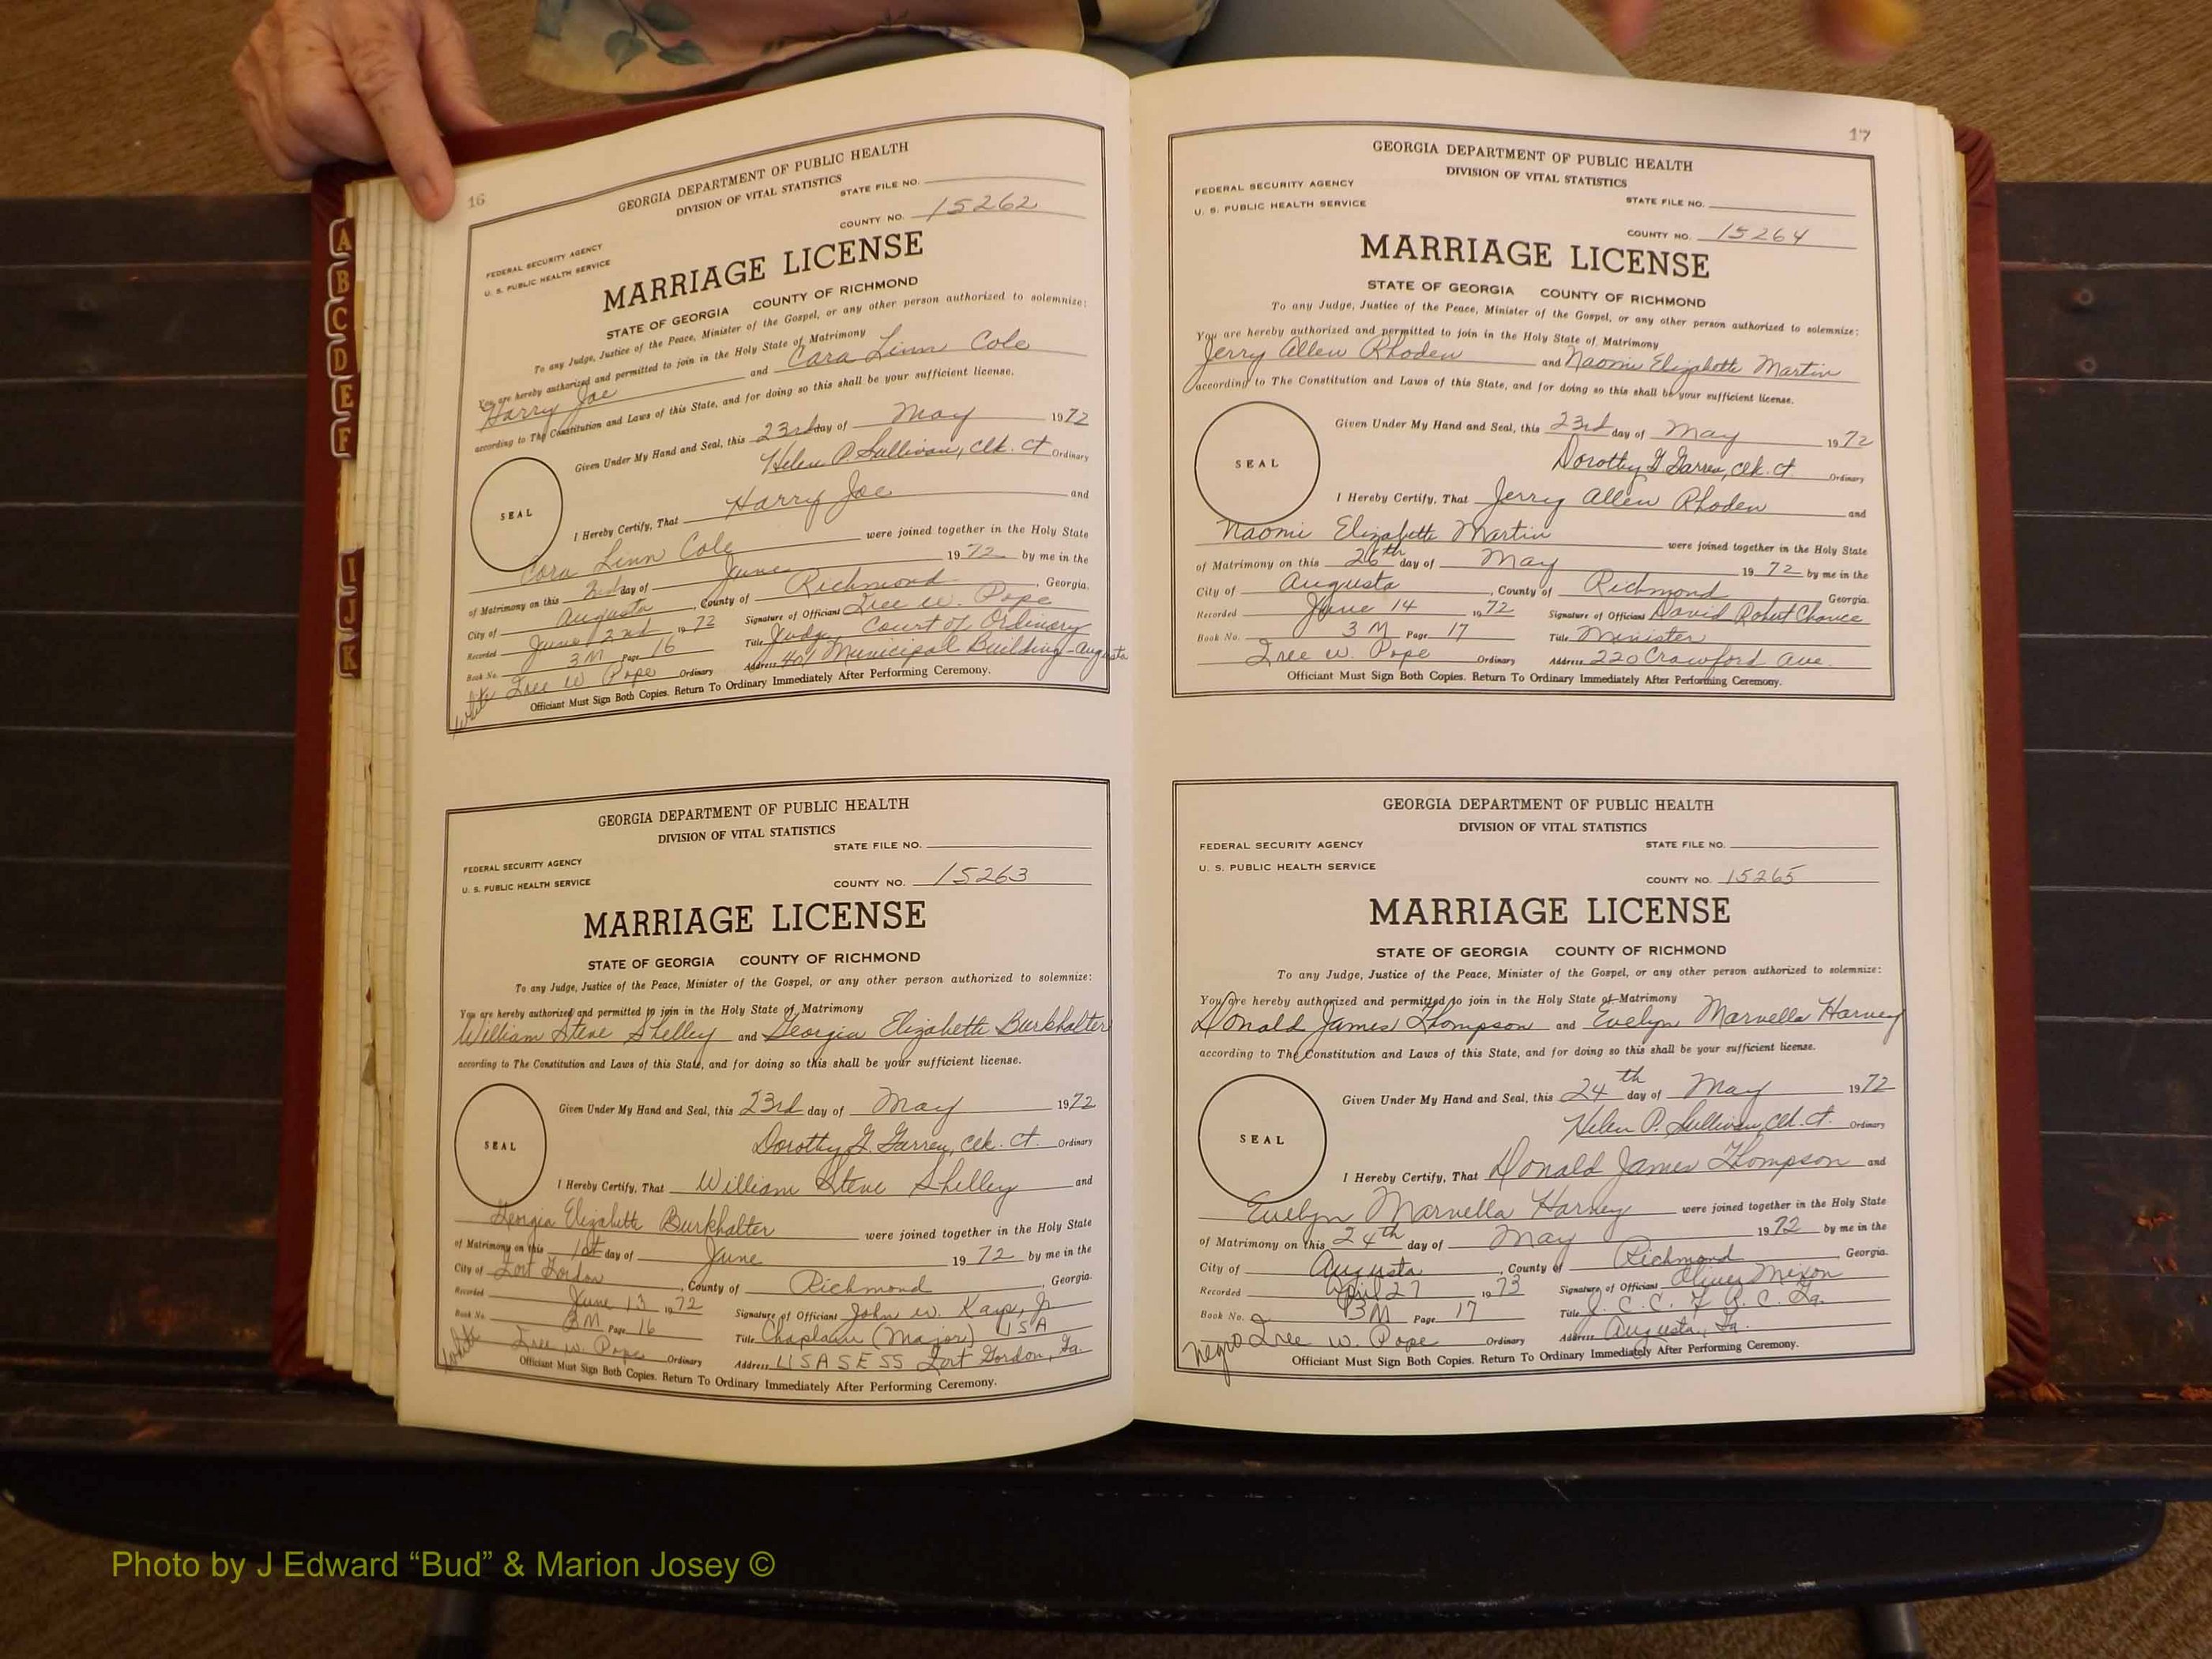 A
B
C
D
E
F
I
J
K
16
GEORGIA DEPARTMENT OF PUBLIC HEALTH
DIVISION OF VITAL STATISTICS
STATE FILE NO.
COUNTY NO. 15262
FEDERAL SECURITY AGENCY
U. S. PUBLIC HEALTH SERVICE
MARRIAGE LICENSE
STATE OF GEORGIA COUNTY OF RICHMOND
To any Judge, Justice of the Peace, Minister of the Gospel, or any other person authorized to solemnize:
You are hereby authorized and permitted to join in the Holy State of Matrimony
Harry Joe and Cara Linn Cole
according to The Constitution and Laws of this State, and for doing so this shall be your sufficient license.
Given Under My Hand and Seal, this 23rd day of May 1972
Helen P. Sullivan, Clk. Ct Ordinary
SEAL
I Hereby Certify, That Harry Joe and
Cora Linn Cole were joined together in the Holy State
of Matrimony on this 2nd day of June 1972 by me in the
City of Augusta, County of Richmond, Georgia.
Recorded June 2nd 1972 Signature of Officiant Iree W. Pope
Book No. 3M Page 16 Title Judge Court of Ordinary
Iree W Pope Ordinary Address 401 Municipal Building - Augusta
white
Officiant Must Sign Both Copies. Return To Ordinary Immediately After Performing Ceremony.
GEORGIA DEPARTMENT OF PUBLIC HEALTH
DIVISION OF VITAL STATISTICS
STATE FILE NO.
FEDERAL SECURITY AGENCY
U. S. PUBLIC HEALTH SERVICE
COUNTY NO. 15263
MARRIAGE LICENSE
STATE OF GEORGIA COUNTY OF RICHMOND
To any Judge, Justice of the Peace, Minister of the Gospel, or any other person authorized to solemnize:
You are hereby authorized and permitted to join in the Holy State of Matrimony
William Steve Shelley and Georgia Elizabeth Burkhalter
according to The Constitution and Laws of this State, and for doing so this shall be your sufficient license.
Given Under My Hand and Seal, this 23rd day of May 1972
Dorothy G. Garren, Clk. Ct. Ordinary
SEAL
I Hereby Certify, That William Steve Shelley and
Georgia Elizabeth Burkhalter were joined together in the Holy State
of Matrimony on this 1st day of June 1972 by me in the
City of Fort Gordon, County of Richmond, Georgia.
Recorded June 13 1972 Signature of Officiant John W. Kays, Jr
Book No. 3M Page 16 Title Chaplain (Major) USA
Iree W. Pope Ordinary Address USASESS Fort Gordon, Ga.
white
Officiant Must Sign Both Copies. Return To Ordinary Immediately After Performing Ceremony.
17
GEORGIA DEPARTMENT OF PUBLIC HEALTH
DIVISION OF VITAL STATISTICS
FEDERAL SECURITY AGENCY
U. S. PUBLIC HEALTH SERVICE
STATE FILE NO.
COUNTY NO. 15264
MARRIAGE LICENSE
STATE OF GEORGIA COUNTY OF RICHMOND
To any Judge, Justice of the Peace, Minister of the Gospel, or any other person authorized to solemnize:
You are hereby authorized and permitted to join in the Holy State of Matrimony
Jerry Allen Rhoden and Naomi Elizabeth Martin
according to The Constitution and Laws of this State, and for doing so this shall be your sufficient license.
Given Under My Hand and Seal, this 23rd day of May 1972
Dorothy G. Garren, Clk. Ct. Ordinary
SEAL
I Hereby Certify, That Jerry Allen Rhoden and
Naomi Elizabeth Martin were joined together in the Holy State
of Matrimony on this 26th day of May 1972 by me in the
City of Augusta, County of Richmond Georgia.
Recorded June 14 1972 Signature of Officiant David Robert Chance
Book No. 3 M Page 17 Title Minister
Iree W. Pope Ordinary Address 220 Crawford Ave.
Officiant Must Sign Both Copies. Return To Ordinary Immediately After Performing Ceremony.
GEORGIA DEPARTMENT OF PUBLIC HEALTH
DIVISION OF VITAL STATISTICS
FEDERAL SECURITY AGENCY STATE FILE NO.
U. S. PUBLIC HEALTH SERVICE
COUNTY NO. 15265
MARRIAGE LICENSE
STATE OF GEORGIA COUNTY OF RICHMOND
To any Judge, Justice of the Peace, Minister of the Gospel, or any other person authorized to solemnize:
You are hereby authorized and permitted to join in the Holy State of Matrimony
Donald James Thompson and Evelyn Marvella Harvey
according to The Constitution and Laws of this State, and for doing so this shall be your sufficient license.
Given Under My Hand and Seal, this 24th day of May 1972
Helen P. Sullivan, Clk. Ct. Ordinary
SEAL
I Hereby Certify, That Donald James Thompson and
Evelyn Marvella Harvey were joined together in the Holy State
of Matrimony on this 24th day of May 1972 by me in the
City of Augusta, County of Richmond, Georgia.
Recorded April 27 1973 Signature of Officiant Oliver Mixon
Book No. 3M Page 17 Title J. C. C. of R. C. Ga.
Iree W. Pope Ordinary Address Augusta, Ga.
negro
Officiant Must Sign Both Copies. Return To Ordinary Immediately After Performing Ceremony.
Photo by J Edward “Bud” & Marion Josey ©